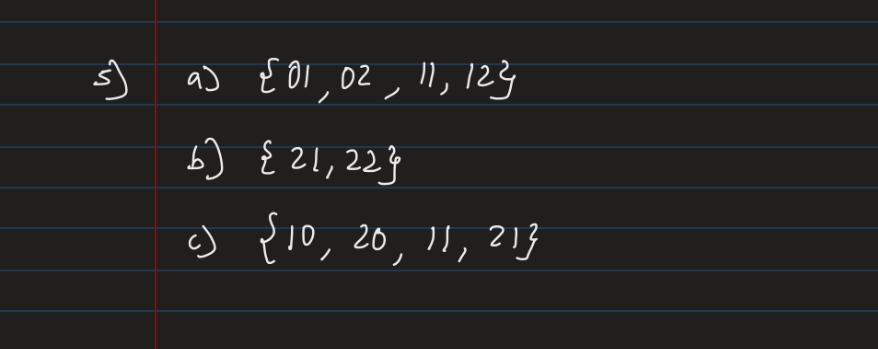 5) a) {01, 02, 11, 12}
b) {21, 22}
c) {10, 20, 11, 21}